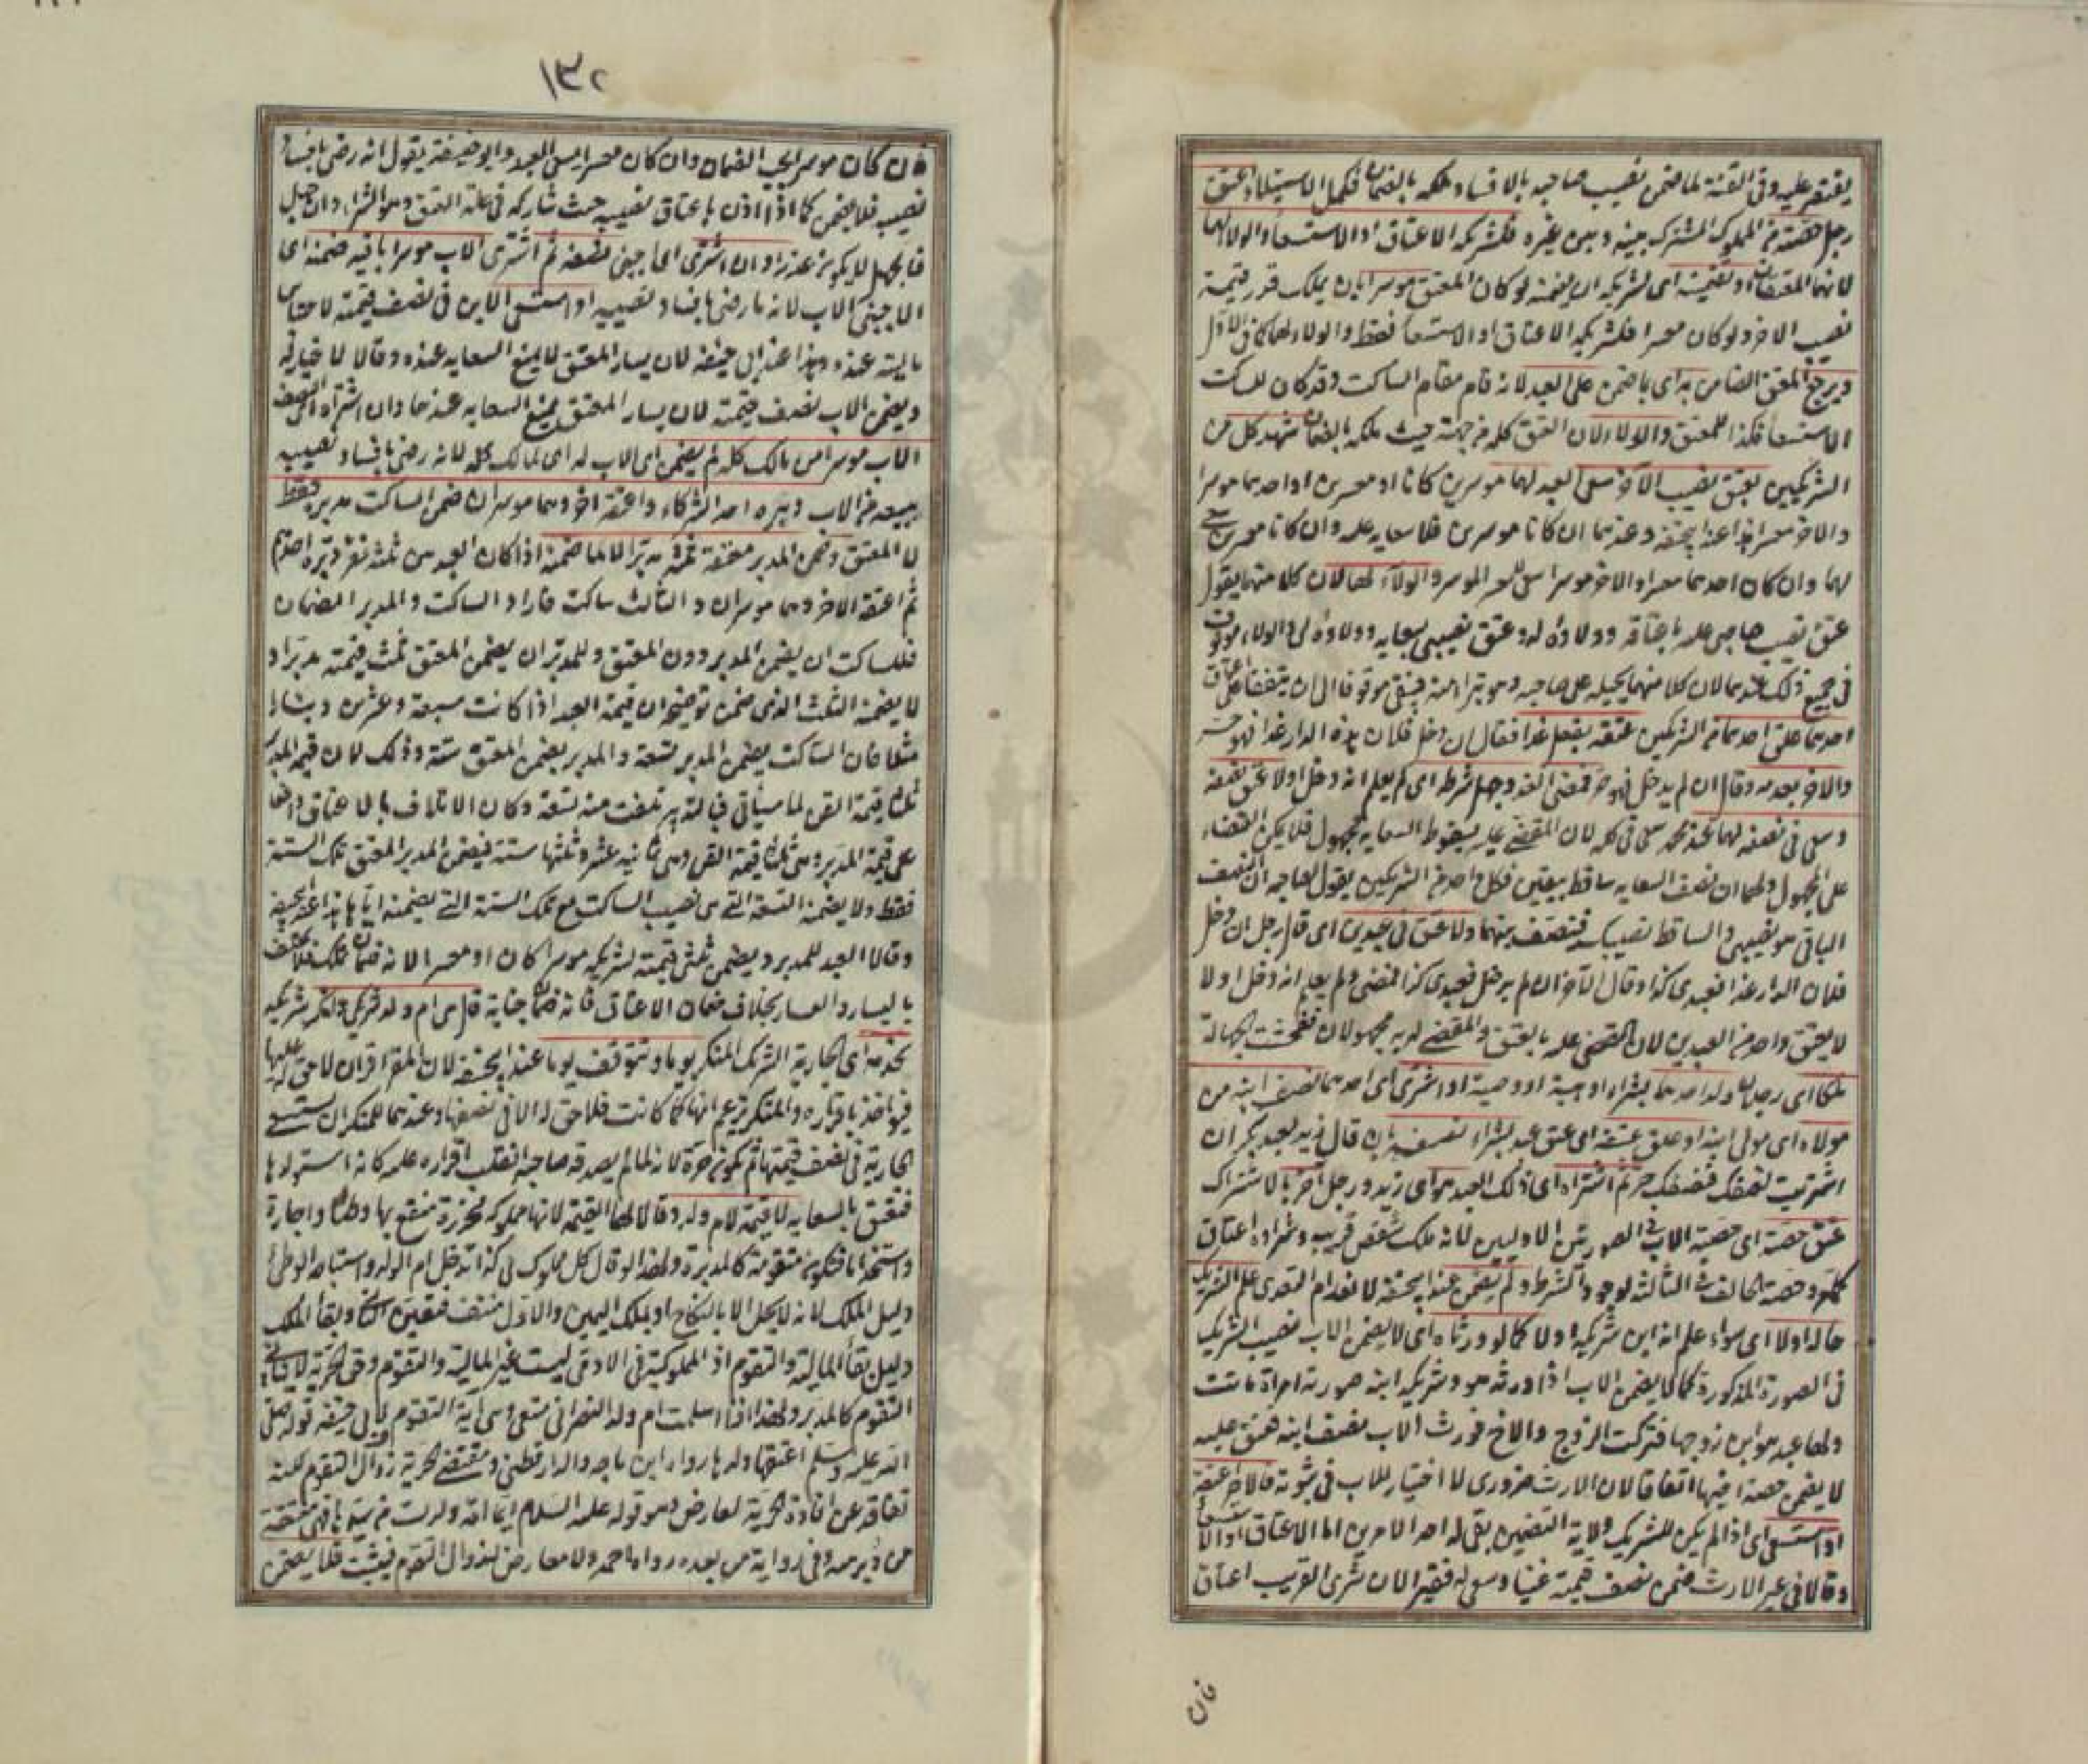 يقتصر عليه وفى القنة لما ضمن نصيب صاحبه بالافساد ملكه بالضمان فكمل الاستيلاد اعتق
رجل حصته من المملوك المشترك بينه وبين غيره فلشريكه الاعتاق او الاستسعاء والولاء لهما
لانهما المعتقان او تضمينه اى لشريكه ان يضمنه لو كان المعتق موسرا بان يملك قدر قيمة
نصيب الاخر ولو كان معسرا فلشريكه الاعتاق او الاستسعاء فقط والولاء لهما كما فى الاول
ويرجع المعتق الضامن به اى بما ضمن على العبد لانه قام مقام الساكت وقد كان للساكت
الاستسعاء فكذا للمعتق والولاء له لان العتق كله من جهته حيث ملكه بالضمان شهد كل من
الشريكين بعتق نصيب الآخر سعى العبد لهما موسرين كانا او معسرين او احدهما موسرا
والاخر معسرا هذا عند ابى حنيفة وعندهما ان كانا موسرين فلا سعاية عليه وان كانا معسرين سعى
لهما وان كان احدهما معسرا والاخر موسرا سعى للموسر والولاء لهما لان كلا منهما يقول
عتق نصيب صاحبى عليه باعتاقه وولاؤه له وعتق نصيبى بسعايه وولاؤه لى والولاء موقوف
فى جميع ذلك عندهما لان كلا منهما يحيله على صاحبه وهو يتبرأ منه فيبقى موقوفا الى ان يتفقا على اعتاق
احدهما علق احدهما من الشريكين عتقه بفعل غدا فقال ان دخل فلان هذه الدار غدا فهو حر
والاخر بعدمه وقال ان لم يدخل فهو حر فمضى الغد وجهل شرطه اى لم يعلم انه دخل اولا عتق نصفه
وسعى فى نصفه لهما وعند محمد سعى فى كله لان المقضى عليه بسقوط السعايه مجهول فلا يمكن القضاء
على المجهول ولهما ان نصف السعايه ساقط بيقين فكل واحد من الشريكين يقول لصاحبه ان النصف
الباقى هو نصيبى والساقط نصيبك فتنصف بينهما ولا عتق فى عبدين اى قال رجل ان دخل
فلان الدار غدا فعبدى كذا وقال الآخر ان لم يدخل فعبدى كذا فمضى ولم يعلم انه دخل اولا
لا يعتق واحد من العبدين لان المقضى عليه بالعتق والمقضى له به مجهولان ففحشت الجهالة
ملكا اى رجلان ولد احدهما بشراء او هبة او وصية او اشترى اى احدهما نصف ابنه من
مولاه اى مولى ابنه او علق عتقه اى عتق عبد بشراء نصفه بان قال زيد لعبد بكر ان
اشتريت نصفك فنصفك حر ثم اشتراه اى ذلك العبد هو اى زيد ورجل آخر بالاشتراك
عتق حصته اى حصته الاب فى الصورتين الاوليين لانه ملك شقص قريبه وشراؤه اعتاق
كما مر وحصة الحالف فى الثالثة لوجود الشرط ولم يضمن عند ابى حنيفة لانعدام التعدى علم الشريك
حاله اولا اى سواء علم انه ابن شريكه اولا كما لو ورثاه اى لا يضمن الاب نصيب الشريك
فى الصورة المذكورة كما لا يضمن الاب اذا ورثه هو وشريكه ابنه صورته امرأة ماتت
ولها عبد هو ابن زوجها فتركت الزوج والاخ فورث الاب نصف ابنه فعتق عليه
لا يضمن حصة اخيها اتفاقا لان الارث ضرورى لا اختيار للاب فى ثبوته فالآخر عتقه
او استسعى اى اذا لم يكن للشريك ولاية التضمين بقى له احد الامرين اما الاعتاق او الاستسعاء
وقالا فى غير الارث ضمن نصف قيمته غنيا وسعى له فقيرا لان شرى القريب اعتاق
فان
١٣٢
فان كان موسرا يجب الضمان وان كان معسرا يسعى العبد وابو حنيفة يقول انه رضى بافساد
نصيبه فلا يضمن كما اذا اذن باعتاق نصيبه حيث شاركه فى علة العتق وهو الشراء وان جهل
فالجهل لا يكون عذرا وان اشترى اى اجنبى نصفه ثم اشترى الاب موسرا باقيه ضمنه اى
الاجنبى الاب لانه ما رضى بافساد نصيبه او استسعى الابن فى نصف قيمته لاحتباس
ماليته عنده وهذا عند ابى حنيفة لان يسار المعتق لا يمنع السعايه عنده وقالا لا خيار له
ويضمن الاب نصف قيمته لان يسار المعتق يمنع السعايه عندهما وان اشتراه اى النصف
الاب موسرا من مالك كله لم يضمن اى الاب له اى لمالك كله لانه رضى بافساد نصيبه
ببيعه من الاب دبره احد الشركاء واعتقه اخر وهما موسران ضمن الساكت مدبره فقط
لا المعتق وضمن المدبر معتقه ثلثه مدبرا لا لما ضمنه اذا كان العبد بين ثلثة نفر دبره احدهم
ثم اعتقه الاخر وهما موسران والثالث ساكت فاراد الساكت والمدبر الضمان
فللساكت ان يضمن المدبر دون المعتق وللمدبر ان يضمن المعتق ثلث قيمته مدبرا و
لا يضمنه الثلث الذى ضمن توضيحه ان قيمة العبد اذا كانت سبعة وعشرين دينارا
مثلا فان الساكت يضمن المدبر تسعة والمدبر يضمن المعتق ستة وذلك لان قيمة المدبر
ثلثا قيمة القن لما سيأتى فبالتدبير تلفت منه تسعة وكان الاتلاف بالاعتاق واقعا
على قيمة المدبر وهى ثلثا قيمة القن وهى ثمانية عشر وثلثها ستة فيضمن المدبر المعتق تلك الستة
فقط ولا يضمنه التسعة التى هى نصيب الساكت مع تلك الستة التى يضمنه اياها هذا عند ابى حنيفة
وقالا العبد للمدبر ويضمن ثلثى قيمته لشريكيه موسرا كان او معسرا لانه ضمان تملك فلا يختلف
باليسار والعسار بخلاف ضمان الاعتاق فانه ضمان جناية قال هى ام ولد شريكى وانكر شريكه
تخدمه اى الجارية الشريك المنكر يوما وتتوقف يوما عند ابى حنيفة لان المقر اقر ان لا حق له عليها
فيؤاخذ باقراره والمنكر يزعم انها كما كانت فلا حق له الا فى نصفها وعندهما للمنكر ان يستسعى
الجارية فى نصف قيمتها ثم تكون حرة لانه لما لم يصدقه صاحبه انقلب اقراره عليه كانه استولدها
فتعتق بالسعايه لا قيمة لام ولد وقالا لها القيمة لانها مملوكه محرزة منتفع بها وطئا واجارة
واستخداما فتكون متقومة كالمدبرة ولهذا لو قال كل مملوك لى كذا تدخل ام الولد واستباحة الوطئ
دليل الملك لانه لا يحل الا بالنكاح او بملك اليمين والاول منتف فتعين الثانى وبقاء الملك
دليل بقاء المالية والتقوم اذ المملوكية فى الادمى ليست غير المالية والتقوم وحق الحرية لا ينافى
التقوم كالمدبر ولهذا اذا اسلمت ام ولد النصرانى تسعى وهى آية التقوم ولابى حنيفة قوله صلى
الله عليه وسلم اعتقها ولدها رواه ابن ماجه والدارقطنى ومقتضى الحرية زوال التقوم لكنه
تقاعد عن افادة الحرية لمعارض وهو قوله عليه السلام ايما امة ولدت من سيدها فهى معتقة
من دبر منه وفى رواية من بعده رواه احمد ولا معارض لزوال التقوم فيثبت فلا يضمن